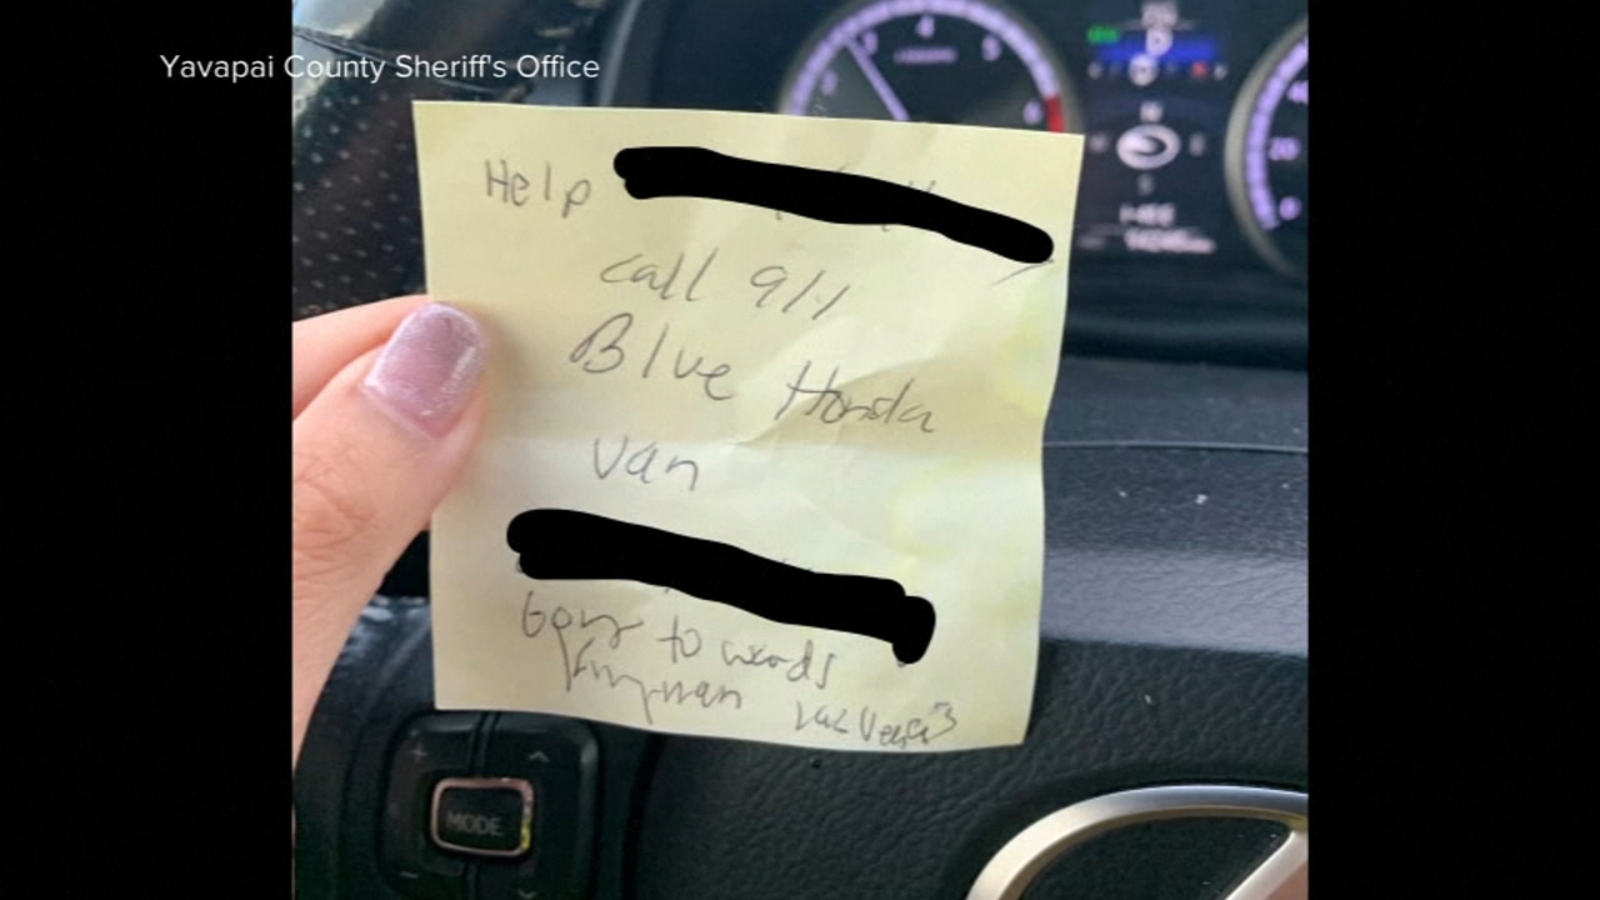 Yavapai County Sheriff's Office
Help
call 911
Blue Honda
van
Going to wards
Kingman Las Vegas
MODE
4
5
6
3
2
D
N
E
S
20